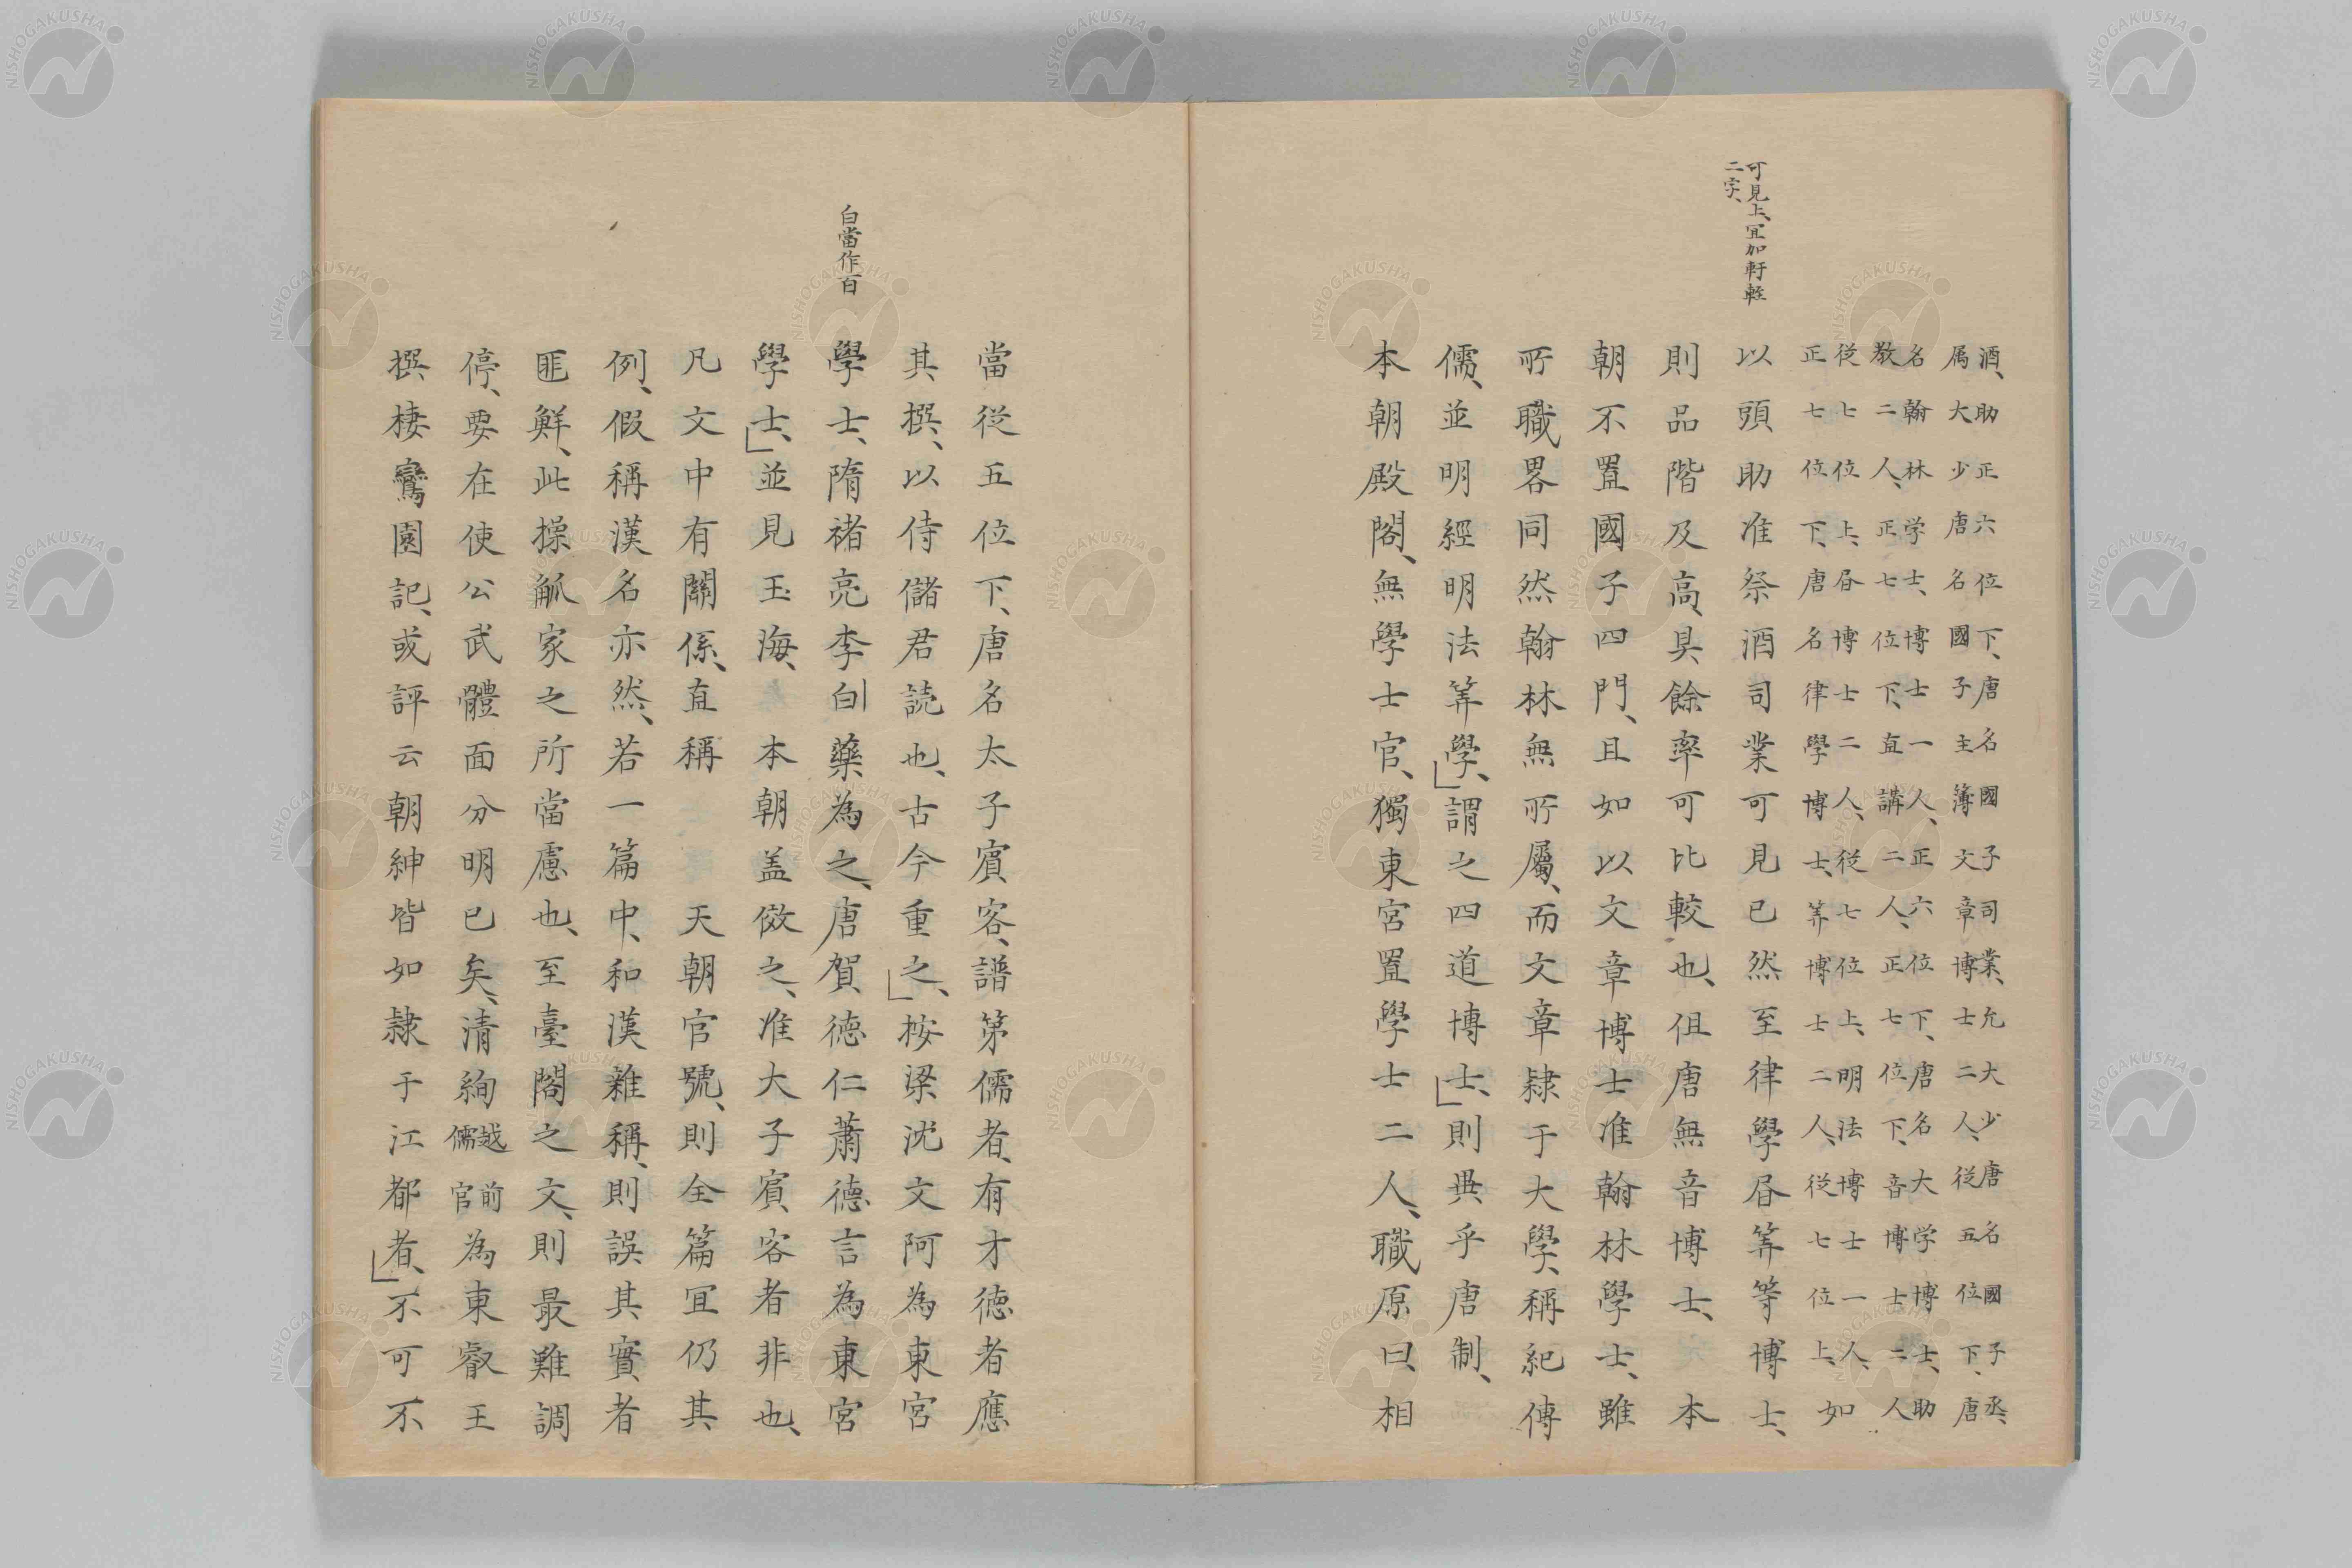 可見上、冝加軒輊
二字、
酒、助正六位下、唐名國子司業、允大少唐名國子丞、
属大少唐名國子主簿文章博士二人、従五位下、唐
名翰林学士、博士一人、正六位下、唐名大学博士、助
教二人、正七位下、直講二人、正七位下、音博士二人
従七位上、㫺博士二人、従七位上、明法博士一人、
正七位下、唐名律學博士、筭博士二人、従七位上、如
以頭助准祭酒司業可見已然至律學㫺筭等博士、
則品階及高、具餘率可比較也、但唐無音博士、本
朝不置國子四門、且如以文章博士准翰林學士、雖
所職畧同然翰林無所屬、而文章隷于大學、稱紀傳
儒、並明經明法筭學、謂之四道博士、則異乎唐制、
本朝殿閣、無學士官、獨東宮置學士二人、職原曰、相
白當作百
當従五位下、唐名太子賓客、譜第儒者、有才徳者應
其撰、以侍儲君読也、古今重之、桉梁沈文阿為東宮
學士、隋褚亮李白藥為之、唐賀徳仁蕭德言為東宮
學士、並見玉海、本朝盖倣之、准大子賓客者非也、
凡文中有關係、直稱天朝官號、則全篇冝仍其
例、假稱漢名亦然、若一篇中、和漢雜稱、則誤其實者
匪鮮、此操觚家之所當慮也、至臺閣之文、則最難調
停、要在使公武體面分明已矣、清絢越前儒官為東叡王
撰棲鸞園記、或評云朝紳皆如隷于江都者、不可不